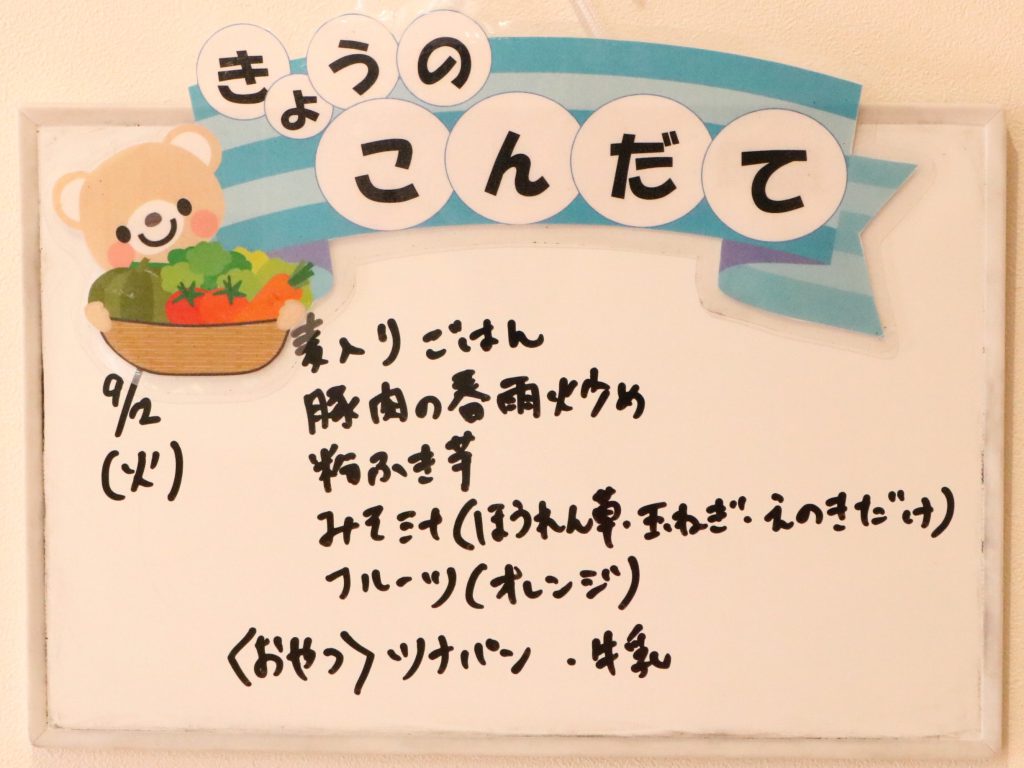 きょうの
こんだて
麦入りごはん
9/2
豚肉の春雨炒め
(火)
粉ふき芋
みそ汁(ほうれん草・玉ねぎ・えのきだけ)
フルーツ(オレンジ)
〈おやつ〉ツナパン・牛乳